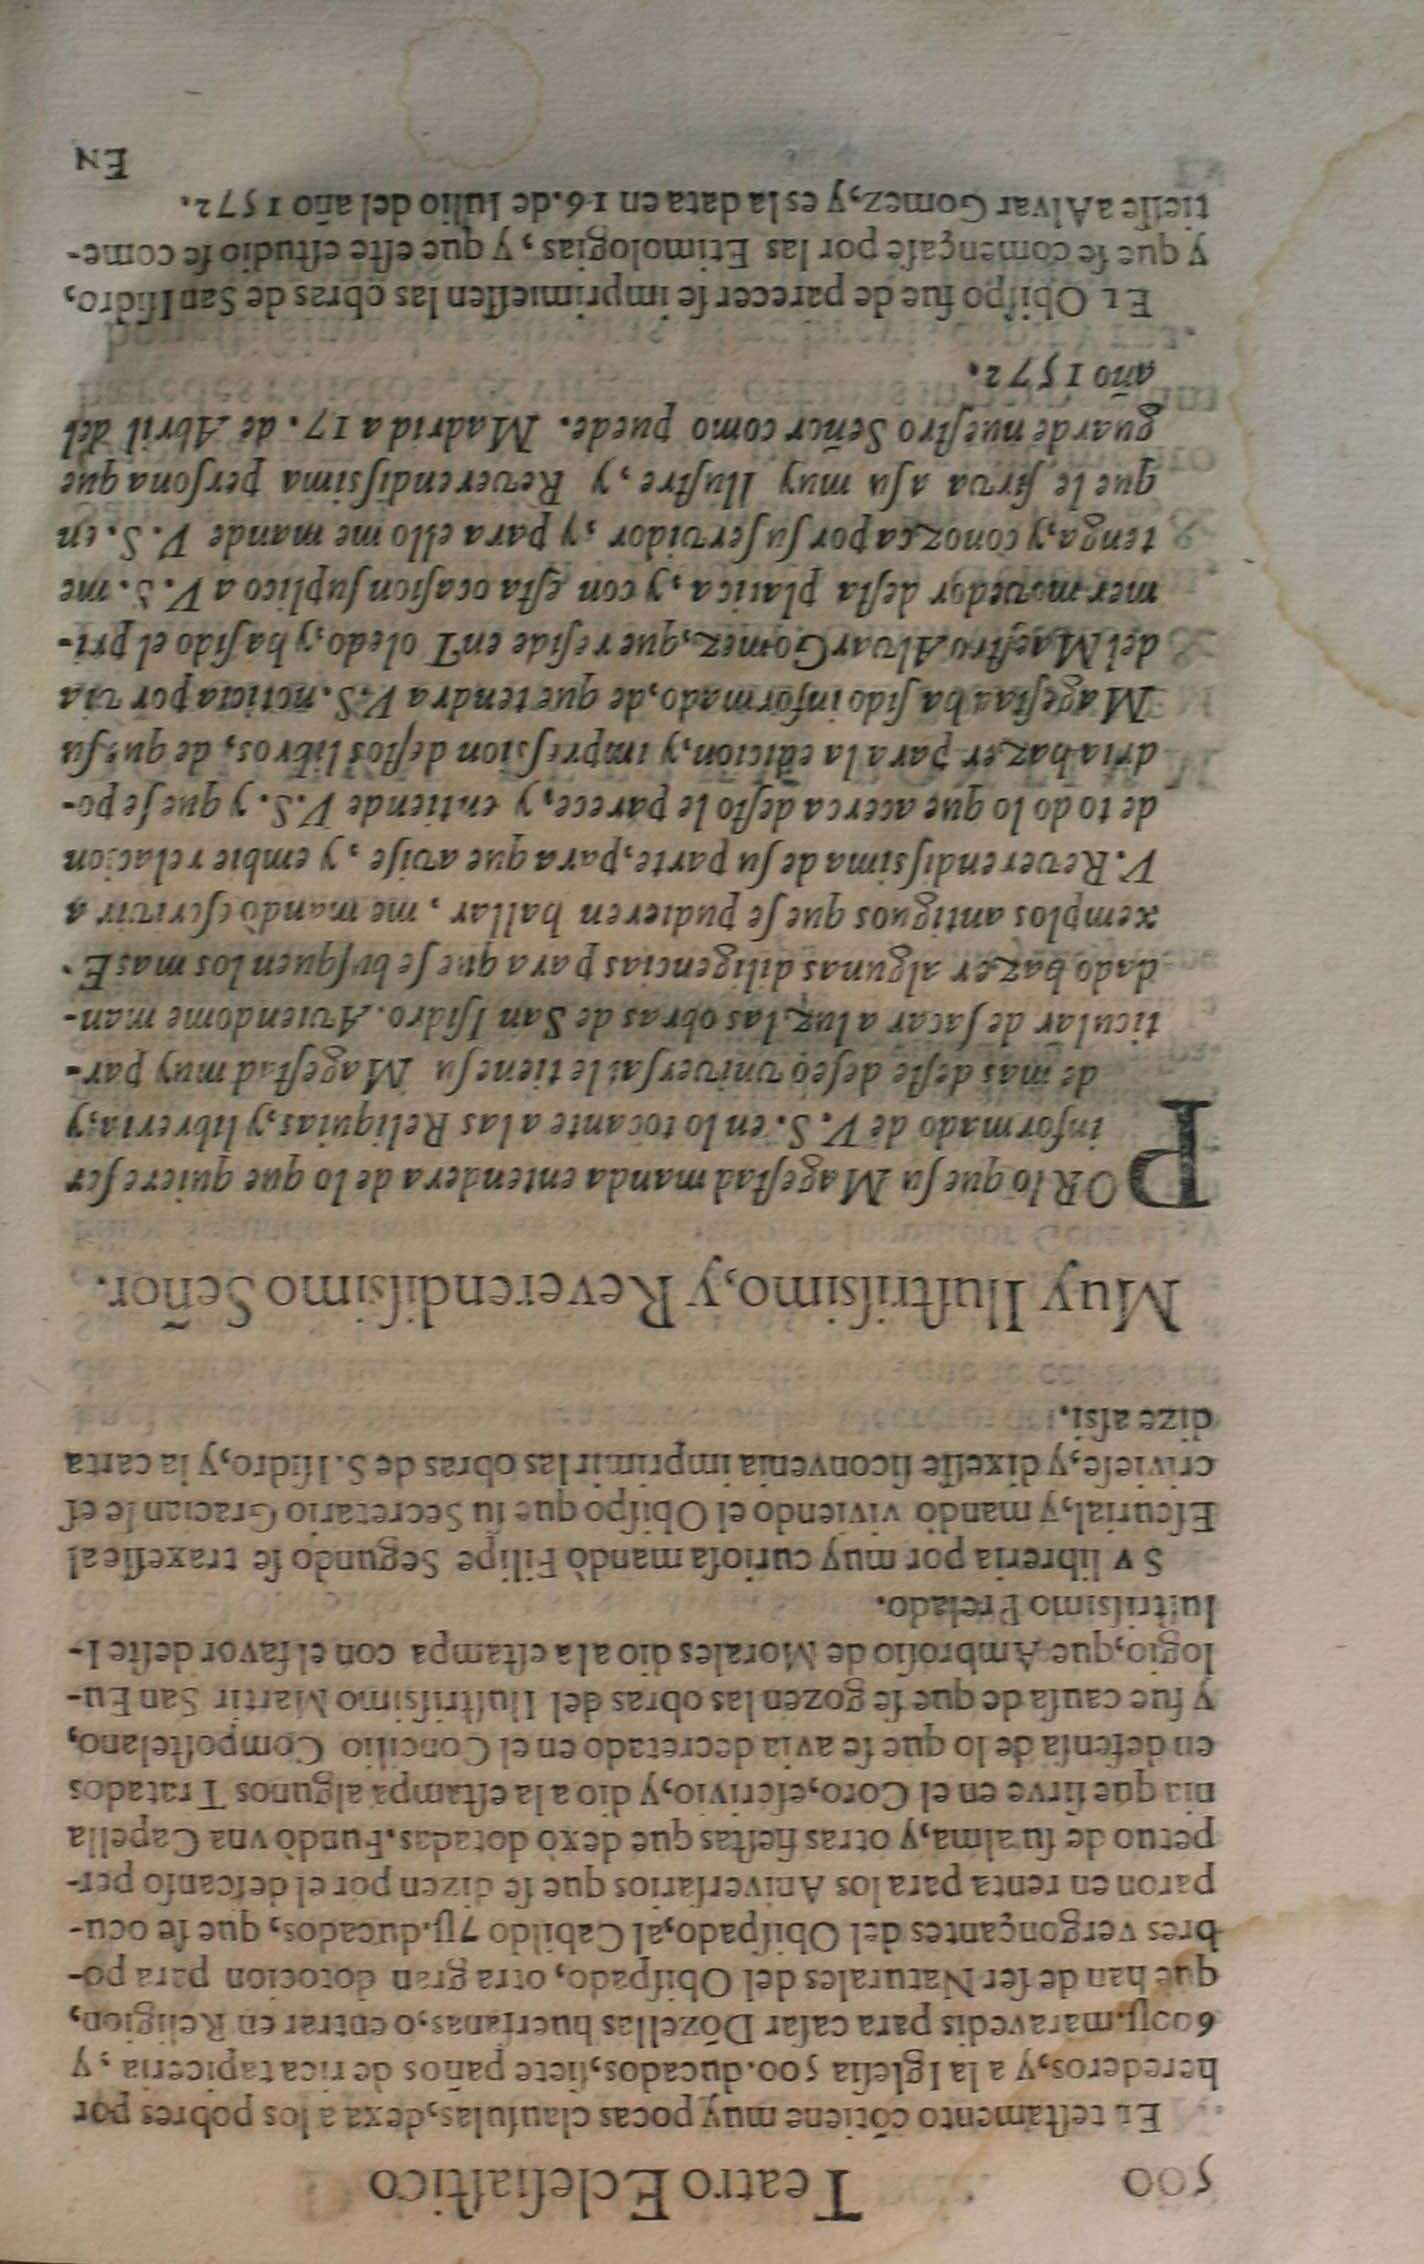 500 Teatro Eclesiaſtico
EL teſtamento cõtiene muy pocas clauſulas, dexa a los pobres por
herederos, y a la Igleſia 500. ducados, ſiete paños de rica tapiceria, y
600y. maravedis para caſar Dõzellas huerfanas, o entrar en Religion,
que han de ſer Naturales del Obiſpado, otra gran dotocion para po-
bres vergonçantes del Obiſpado, al Cabildo 7y. ducados, que ſe ocu-
paron en renta para los Aniverſarios que ſe dizen por el deſcanſo per-
petuo de ſu alma, y otras fieſtas que dexò dotadas. Fundò vna Capella
nia que ſirve en el Coro, eſcrivio, y dio a la eſtampa algunos Tratados
en defenſa de lo que ſe avia decretado en el Concilio Compoſtelano,
y fue cauſa de que ſe gozen las obras del Iluſtriſsimo Martir San Eu-
logio, que Ambroſio de Morales dio a la eſtampa con el favor deſte I-
luſtriſsimo Prelado.
SV libreria por muy curioſa mandò Filipe Segundo ſe traxeſſe al
Eſcurial, y mandò viviendo el Obiſpo que ſu Secretario Gracian le eſ
criviеſe, y dixeſſe ſi convenia imprimir las obras de S. Iſidro, y la carta
dize aſsi.
Muy Iluſtriſsimo, y Reverendiſsimo Señor.
POR lo que ſu Mageſtad manda entendera de lo que quiere ſer
informado de V. S. en lo tocante a las Reliquias, y libreria, y
de mas deſte deſeo vniverſal le tiene ſu Mageſtad muy par-
ticular de ſacar a luz las obras de San Iſidro. Aviendome man-
dado hazer algunas diligencias para que ſe buſquen los mas E-
xemplos antiguos que ſe pudieren hallar, me mandò eſcrivir a
V. Reverendiſsima de ſu parte, para que aviſe, y embie relacion
de todo lo que acerca deſto le parece, y entiende V. S. y que ſe po-
dria hazer para la edicion, y impreſsion deſtos libros, de que ſu
Mageſtad ha ſido informado, de que tendra V. S. noticia por via
del Maeſtro Alvar Gomez, que reſide en Toledo, y ha ſido el pri-
mer movedor deſta platica, y con eſta ocaſion ſuplico a V. S. me
tenga, y conozca por ſu ſervidor, y para ello me mande V. S. en
que le ſirva a ſu muy Iluſtre, y Reverendiſsima perſona que
guarde nueſtro Señor como puede. Madrid a 17. de Abril del
año 1572.
EL Obiſpo fue de parecer ſe imprimieſſen las obras de San Iſidro,
y que ſe començaſe por las Etimologias, y que eſte eſtudio ſe come-
tieſſe a Alvar Gomez, y es la data en 16. de Iulio del año 1572.
EN